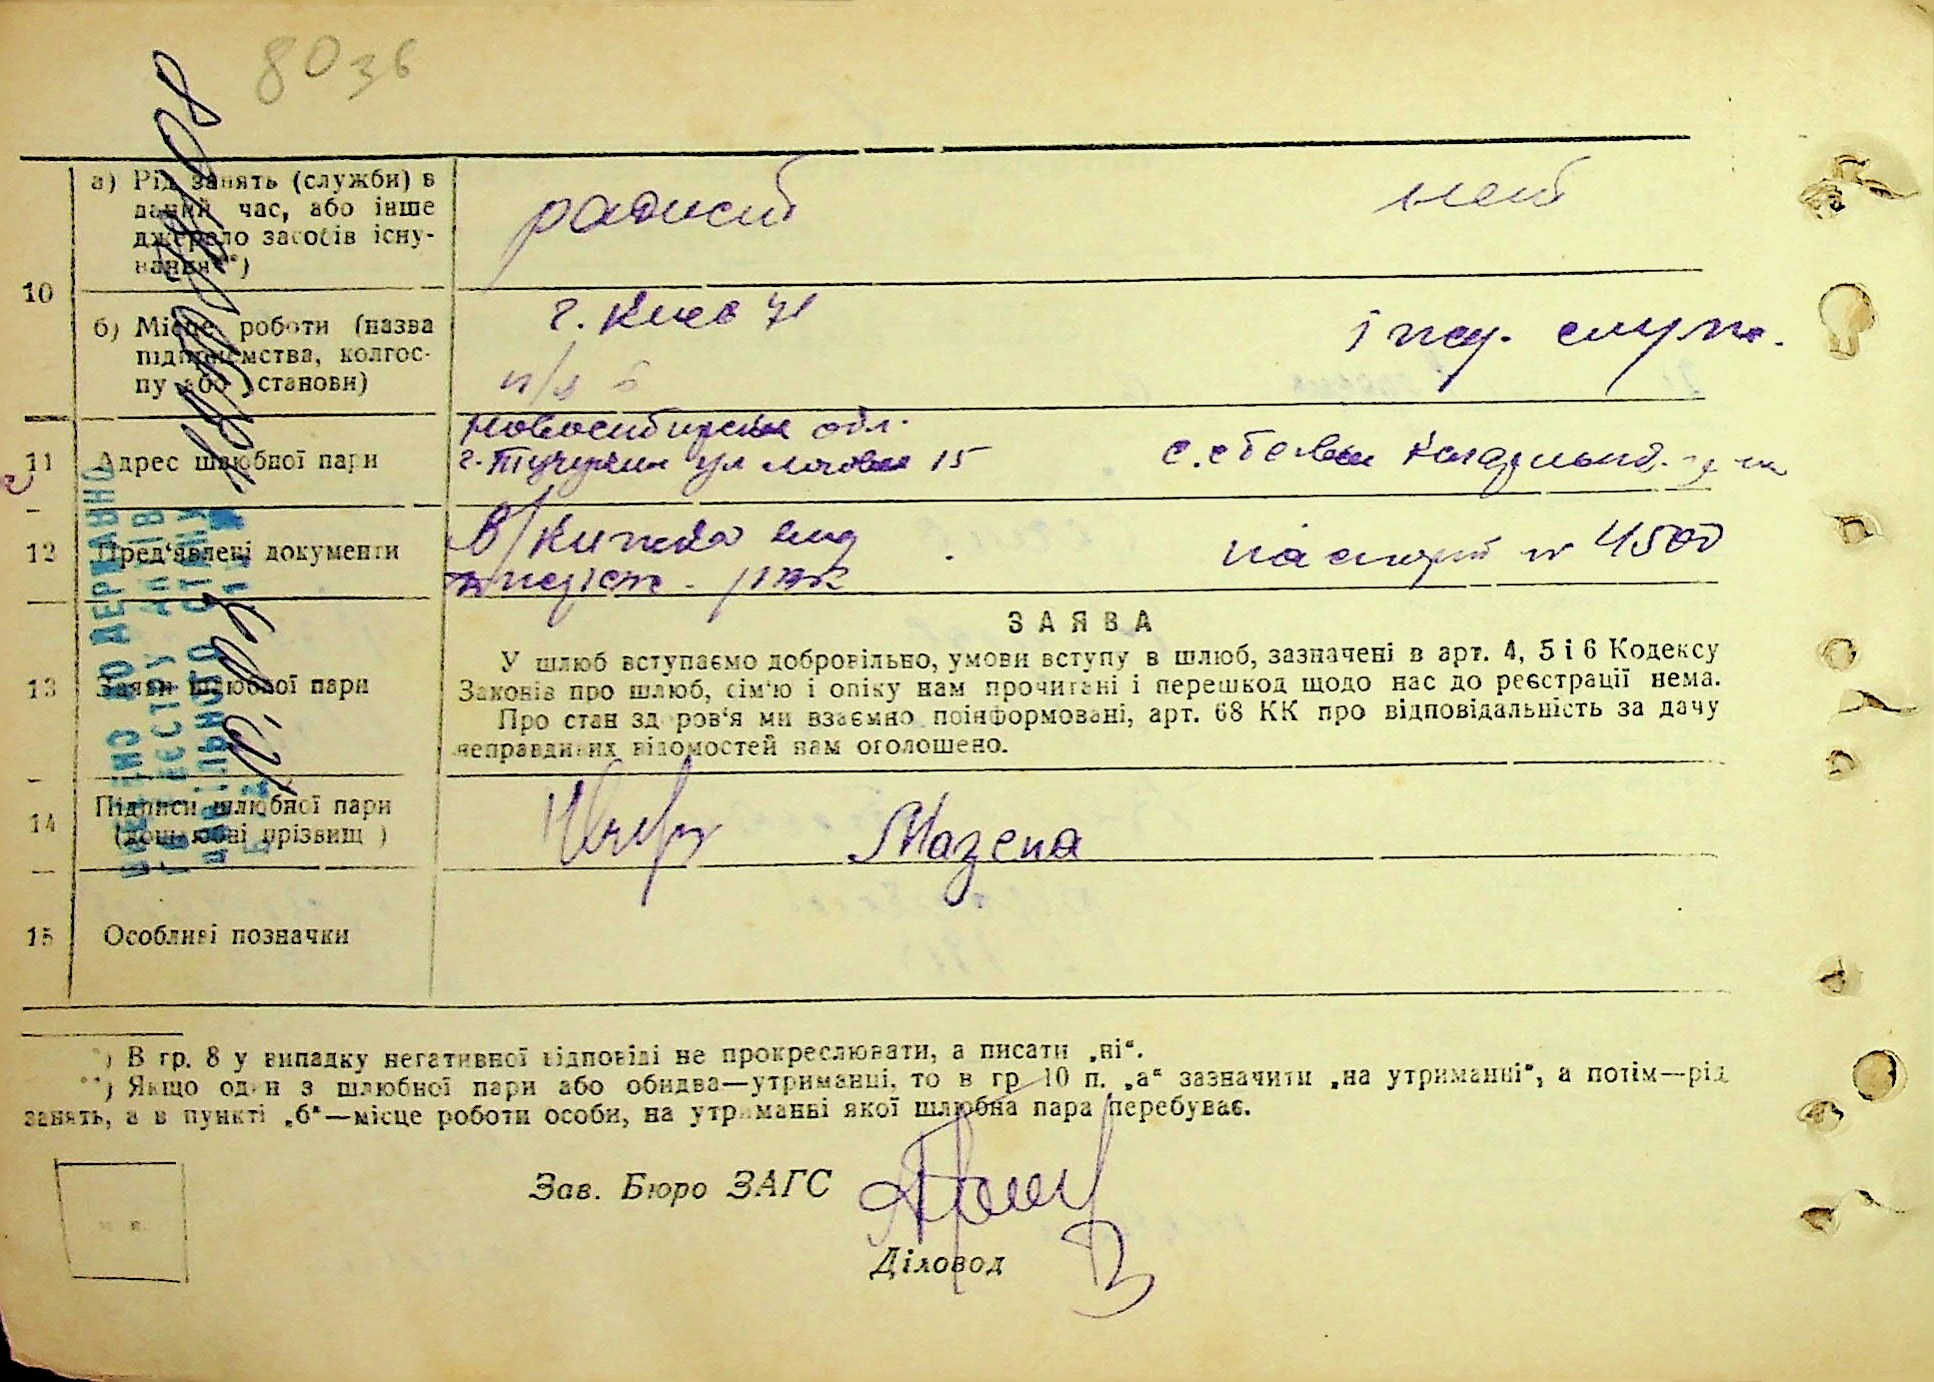 80зв
10
а) Рід занять (служби) в
даний час, або інше
джерело засобів існу-
вання**)
радист
нет
б) Місце роботи (назва
підприємства, колгос-
пу або установи)
г. Киев 71
п/я 6
11
Адрес шлюбної пари
Новосибирская обл.
г. ул 15
12
Пред'явлені документи
В/книжка
паспорт № 4500
13
Заяви шлюбної пари
ЗАЯВА
У шлюб вступаємо добровільно, умови вступу в шлюб, зазначені в арт. 4, 5 і 6 Кодексу
Законів про шлюб, сім'ю і опіку нам прочитані і перешкод щодо нас до реєстрації нема.
Про стан здоров'я ми взаємно поінформовані, арт. 68 КК про відповідальність за дачу
неправдивих відомостей нам оголошено.
14
Підписи шлюбної пари
(дошлюбні прізвищ )
Мазепа
15
Особливі позначки
ВНЕСЕНО ДО ДЕРЖАВНОГО
РЕЄСТРУ АКТІВ
ЦИВІЛЬНОГО СТАНУ
*) В гр. 8 у випадку негативної відповіді не прокреслювати, а писати „ні“.
**) Якщо один з шлюбної пари або обидва—утриманці, то в гр 10 п. „а“ зазначити „на утриманні“, а потім—рід
занять, а в пункті „б“—місце роботи особи, на утриманні якої шлюбна пара перебуває.
Зав. Бюро ЗАГС
Діловод